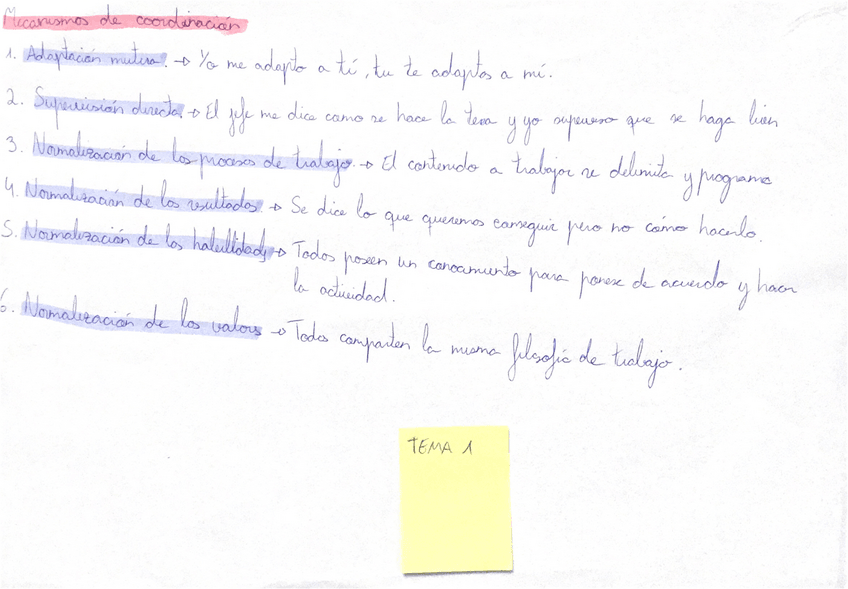 Mecanismos de coordinación
1. Adaptación mutua. → Yo me adapto a tí, tu te adaptas a mí.
2. Supervisión directa → El jefe me dice como se hace la tarea y yo superviso que se haga bien
3. Normalización de los procesos de trabajo. → El contenido a trabajar se delimita y programa
4. Normalización de los resultados → Se dice lo que queremos conseguir pero no cómo hacerlo.
5. Normalización de las habilidades → Todos poseen un conocimiento para ponerse de acuerdo y hacer
la actividad.
6. Normalización de los valores → Todos comparten la misma filosofía de trabajo.
TEMA 1